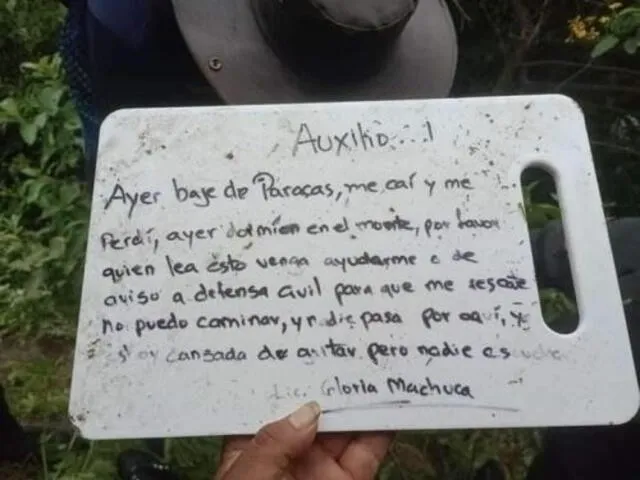 Auxilio...!
Ayer baje de Paracas, me caí y me
Perdí, ayer dormí en en el monte, por favor
quien lea ésto venga ayudarme o de
aviso a defensa civil para que me rescate
no puedo caminar, y nadie pasa por aquí, y
estoy cansada de gritar pero nadie escucha
Lic. Gloria Machuca